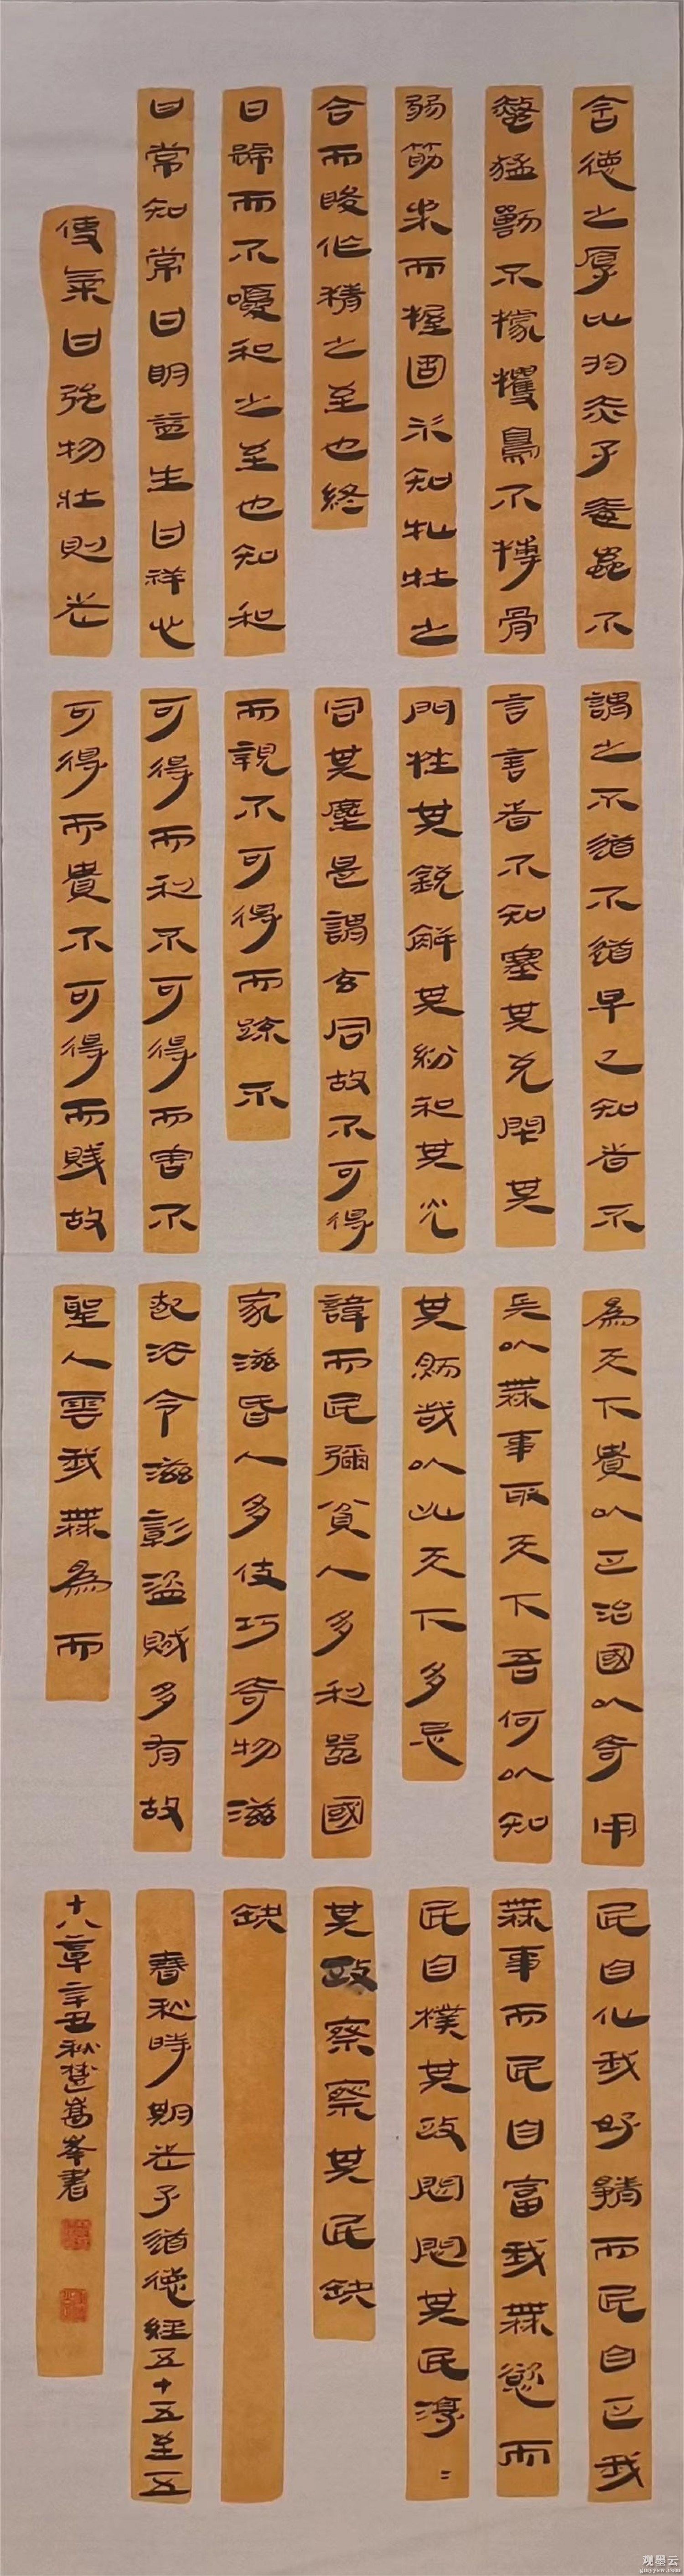 含德之厚比於赤子毒蟲不
螫猛獸不據玃鳥不搏骨
弱筋柔而握固未知牝牡之
合而朘作精之至也終
日號而不嚘和之至也知和
曰常知常曰明益生曰祥心
使氣曰強物壯則老
謂之不道不道早已知者不
言言者不知塞其兌閉其
門挫其銳解其紛和其光
同其塵是謂玄同故不可得
而親不可得而疏不
可得而利不可得而害不
可得而貴不可得而賤故
為天下貴以正治國以奇用
兵以無事取天下吾何以知
其然哉以此天下多忌
諱而民彌貧人多利器國
家滋昏人多伎巧奇物滋
起法令滋彰盜賊多有故
聖人雲我無為而
民自化我好靜而民自正我
無事而民自富我無慾而
民自樸其政悶悶其民淳〻
其政察察其民缺
缺
春秋時期老子道德經五十五至五
十八章辛丑秋楚嵩峯書
观墨云
gmyyww.com